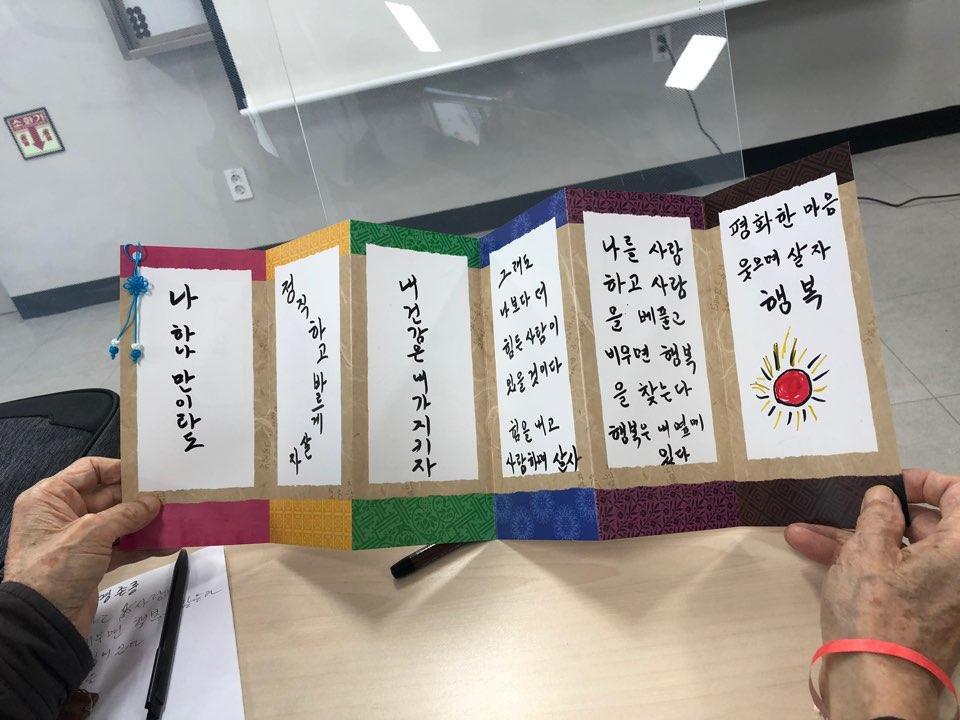 소화기
나 하나 만이라도
정직하고 바르게 살자
내 건강은 내가 지키자
그래도
나보다 더
힘든 사람이
있을 것이다
힘을 내고
사랑하며 살자
나를 사랑
하고 사랑
을 베풀고
비우면 행복
을 찾는다
행복은 내 옆에
있다
평화한 마음
웃으며 살자
행복